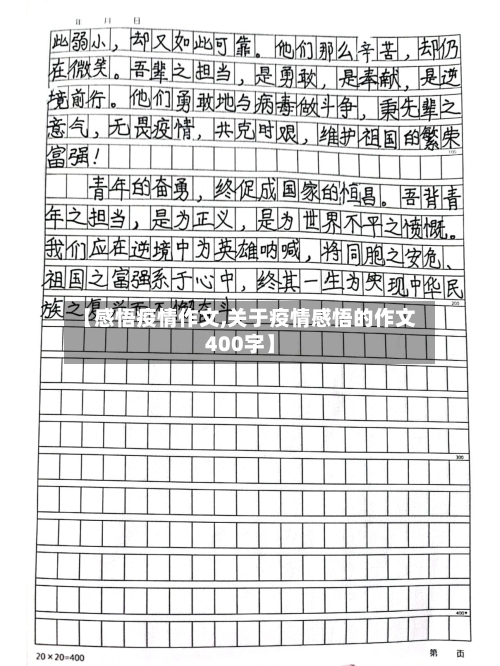 年 月 日
此弱小，却又如此可靠。他们那么辛苦，却仍
在微笑。吾辈之担当，是勇敢，是奉献，是逆
境前行。他们勇敢地与病毒做斗争，秉先辈之
意气，无畏疫情，共克时艰，维护祖国的繁荣
富强！
100
青年的奋勇，终促成国家的恒昌。吾背青
年之担当，是为正义，是为世界不平之愤慨。
我们应在逆境中为英雄呐喊，将同胞之安危、
祖国之富强系于心中，终其一生为实现中华民
200
族之复兴而不懈奋斗
【感悟疫情作文,关于疫情感悟的作文
400字】
300
400
20×20=400
第 页